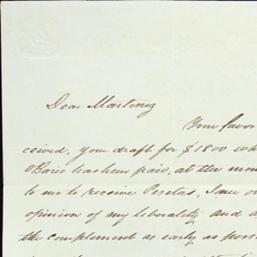 Dear Martinez
Your favor
ceived, your draft for $1800 wh
O'Bario has been paid, at the mom
to me to receive Peseta's. I am ov
opinion of my liberality and a
the complement as early as poss